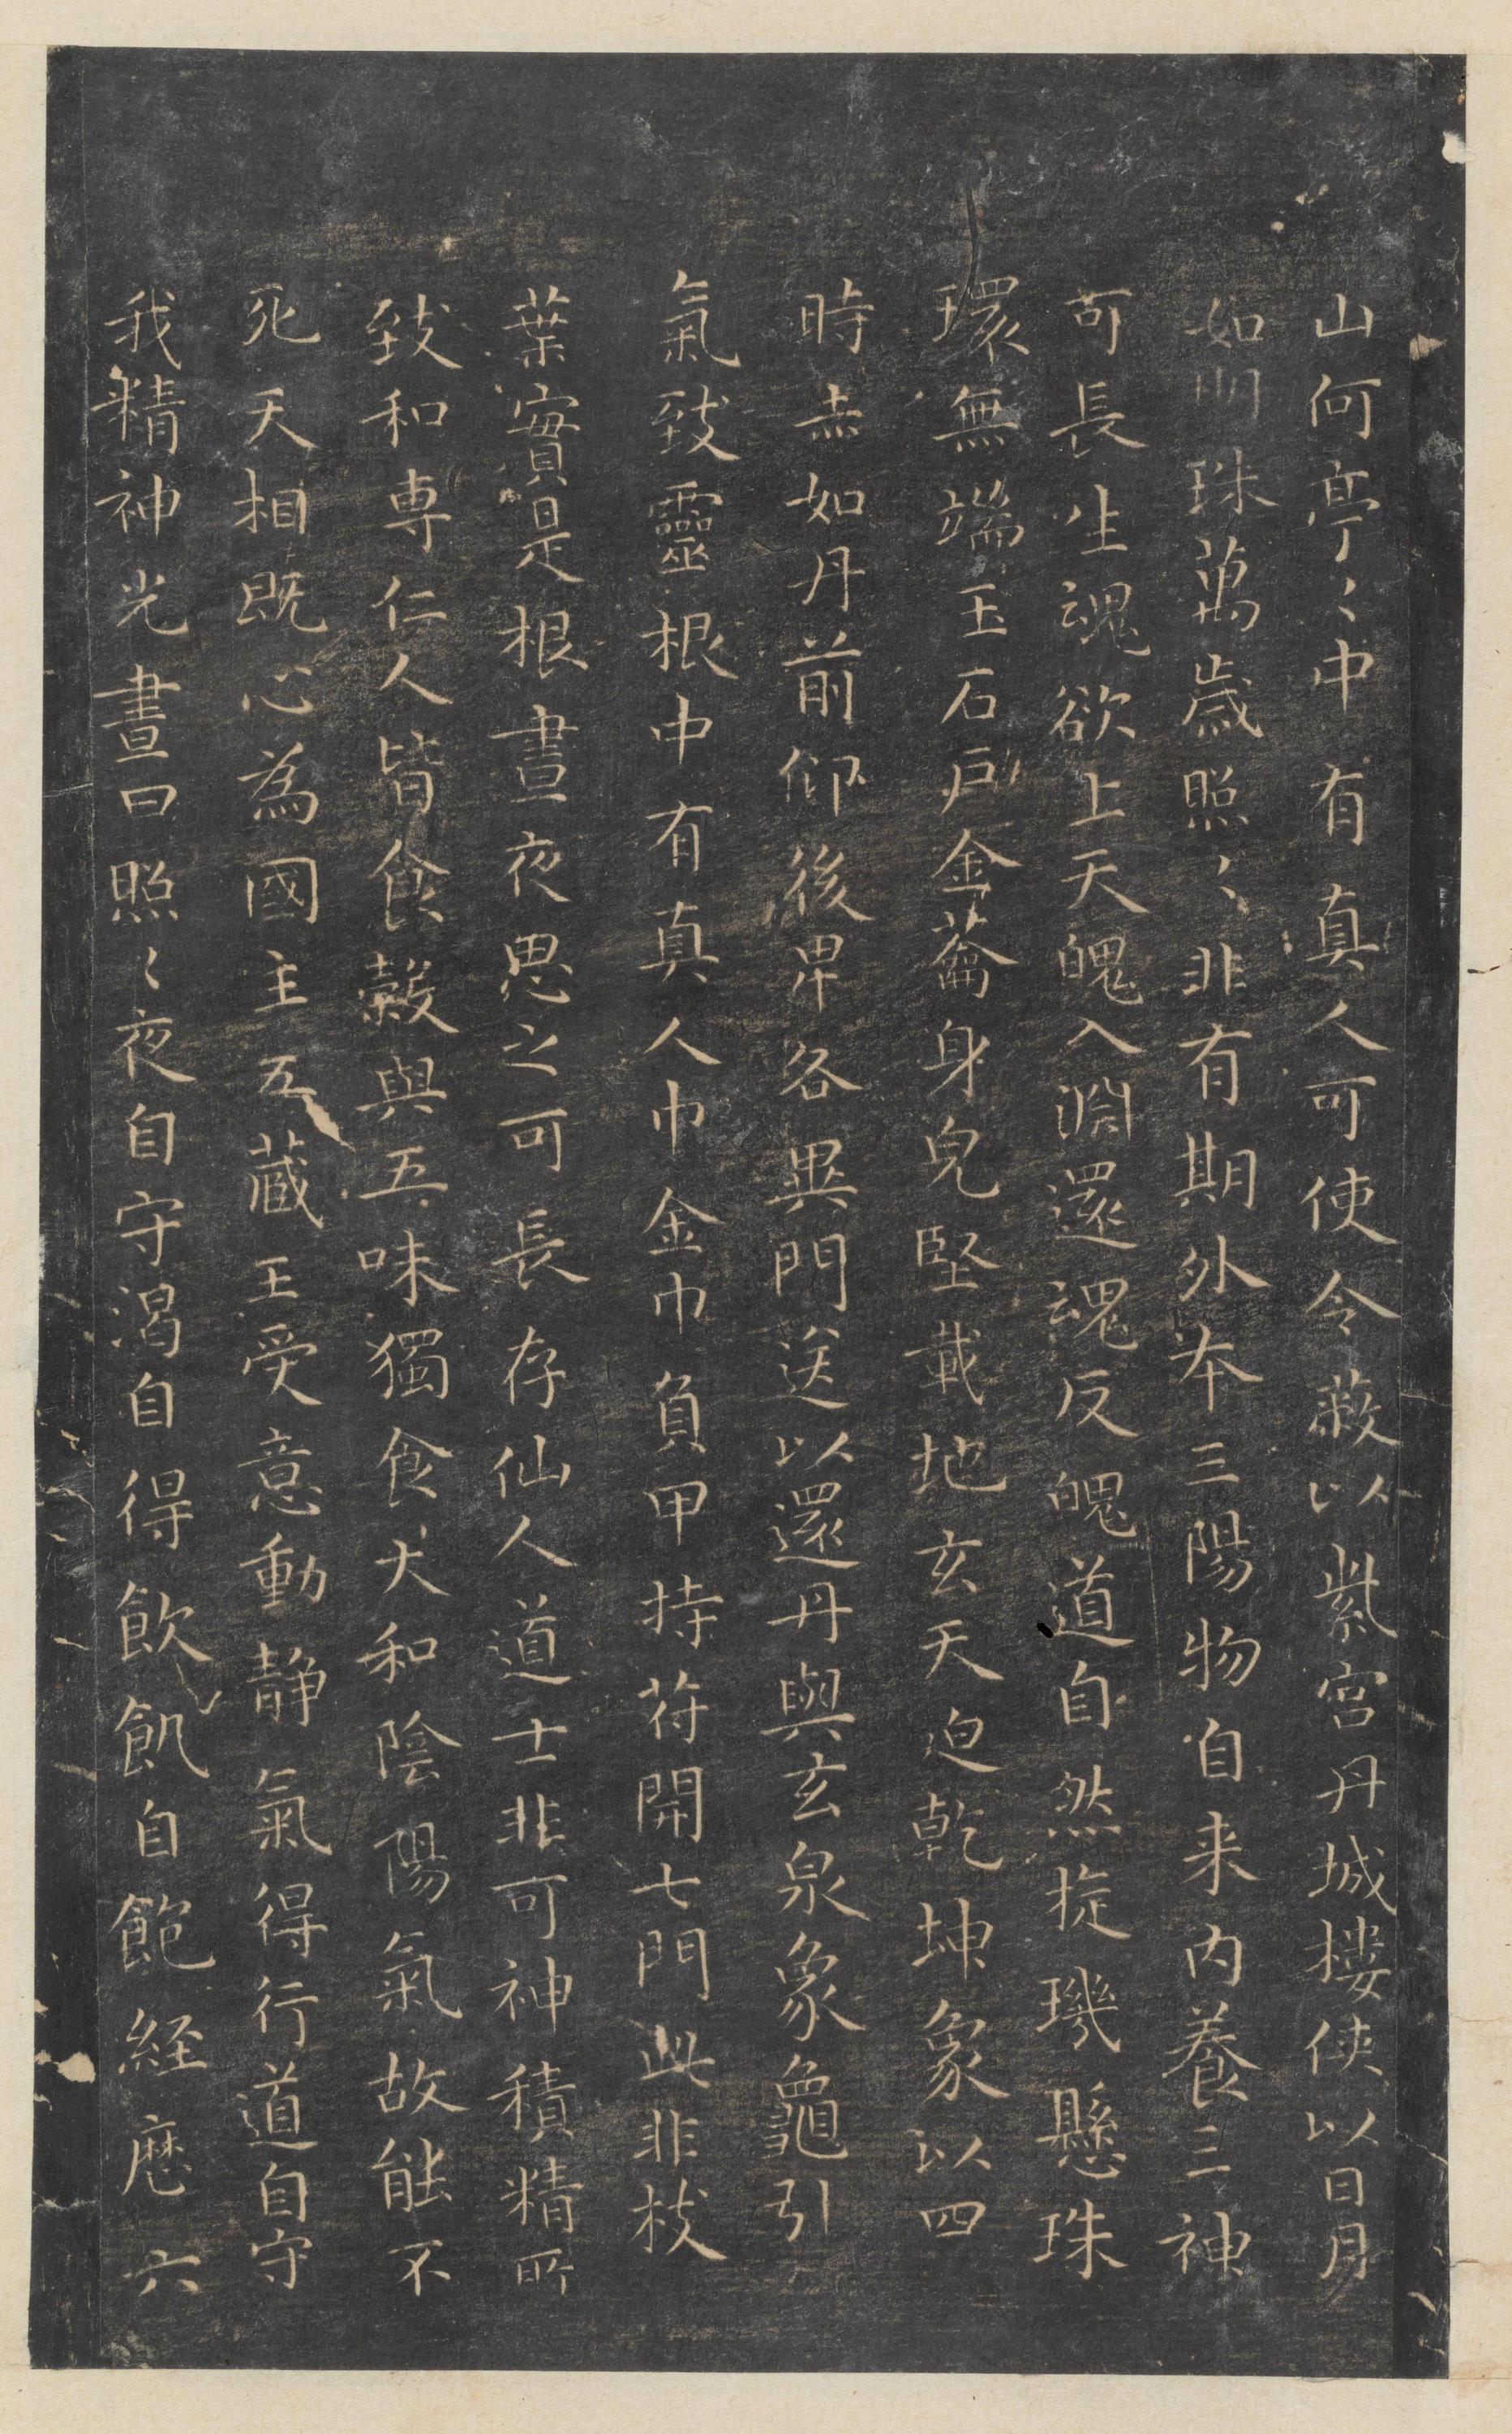 山何亭〻中有真人可使令蔽以紫宫丹城樓俠以日月
如明珠萬歲照〻非有期外本三陽物自来内養三神
可長生魂欲上天魄入淵還魂反魄道自然挻璣懸珠
環無端玉石戶金蘥身皃堅載地玄天迫乾坤象以四
時赤如丹前仰後卑各異門送以還丹與玄泉象龜引
氣致靈根中有真人巾金巾負甲持苻開七門此非枝
葉實是根晝夜思之可長存仙人道士非可神積精所
致和専仁人皆食榖與五味獨食大和陰陽氣故能不
死天相既心為國主五藏王受意動静氣得行道自守
我精神光晝日照〻夜自守渴自得飲飢自飽経歷六